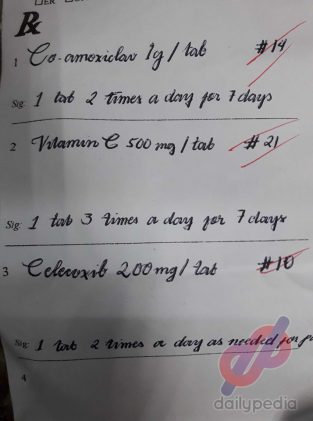 ER
Rx
1 Co-amoxiclav 1g / tab #14
Sig: 1 tab 2 times a day for 7 days
2 Vitamin C 500 mg / tab #21
Sig: 1 tab 3 times a day for 7 days
3 Celecoxib 200 mg / tab #10
Sig: 1 tab 2 times a day as needed for
4
dailypedia